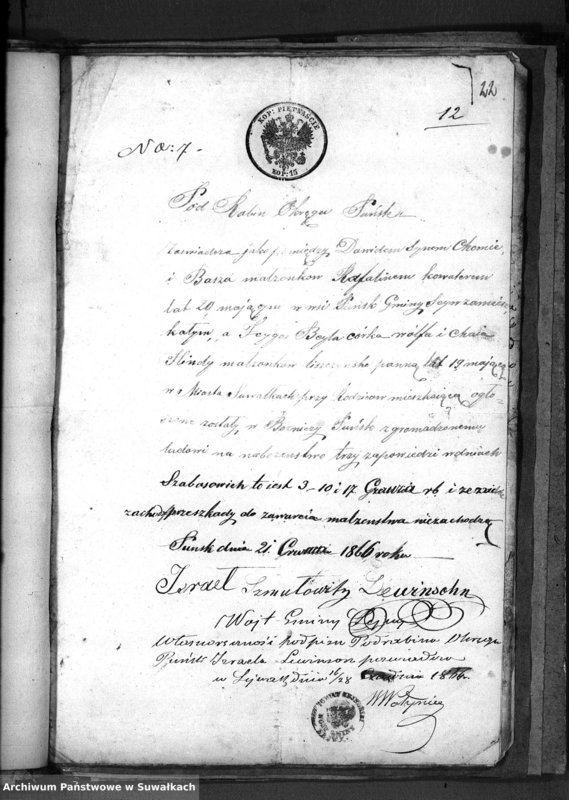 22
12
No: 7 -
KOP: PIĘTNAŚCIE
KOP: 15
Pod Rabin Okręgu Puńsk
Zaswiadcza jako pomiędzy Dawidem synem Chomie,
i Basza malzonkow Rafalinem kowalerem
lat 20 mającym w wsi Puńsk Gminy Sejwy zamiesz
kałym, a Feygo Beyla corka wolfa i Chaia
Hindy malzonkow panną lat 19 mającą
w Miescie Suwałkach przy Rodzicow mieszkającą ogło
szone zostały w Boznicy Puńsk zgromadzonemu
ludowi na nabozenstwo trzy zapowiedzi w dniach
Szabasowich to iest 3-10 i 17 rb i ze
zachodz przeszkady do zawarcia malzenstwa niezachodzą
Punsk dnia 21 1866 roku
Israel Szmułowitz Lewinsohn
Wójt Gminy Sejwy
Własnoręczność podpisu Podrabina Okręgu
Puńsk Izraela Lewinson poswiadcza
w Sejwach dnia 16/28 1866.
W Wołyniec
Archiwum Państwowe w Suwałkach